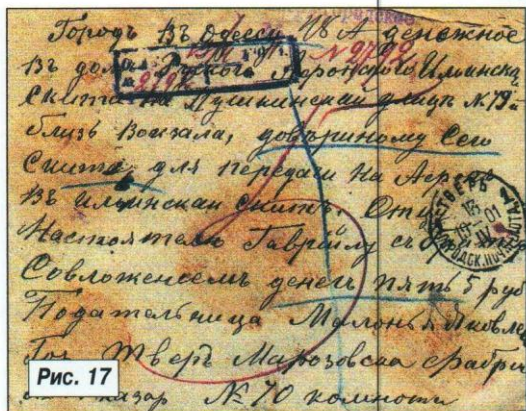 Городъ Въ Одессу В А денежное
№ 2792
Въ домъ Афонскаго Ильинска
Скита на Пушкинская улицъ № 79
близь Вокзала, довѣриному Сего
Скита, для передачи На Афонъ
Въ Ильинская Скитъ. Отцу
Настоятель Гаврійлу съ
Совложенъемъ денегъ пять 5 руб
Подательница Маланья Яковле
Гор. Тверь Марозовска фабри
казар № 70 комноты
ТВЕРЬ
Рис. 17